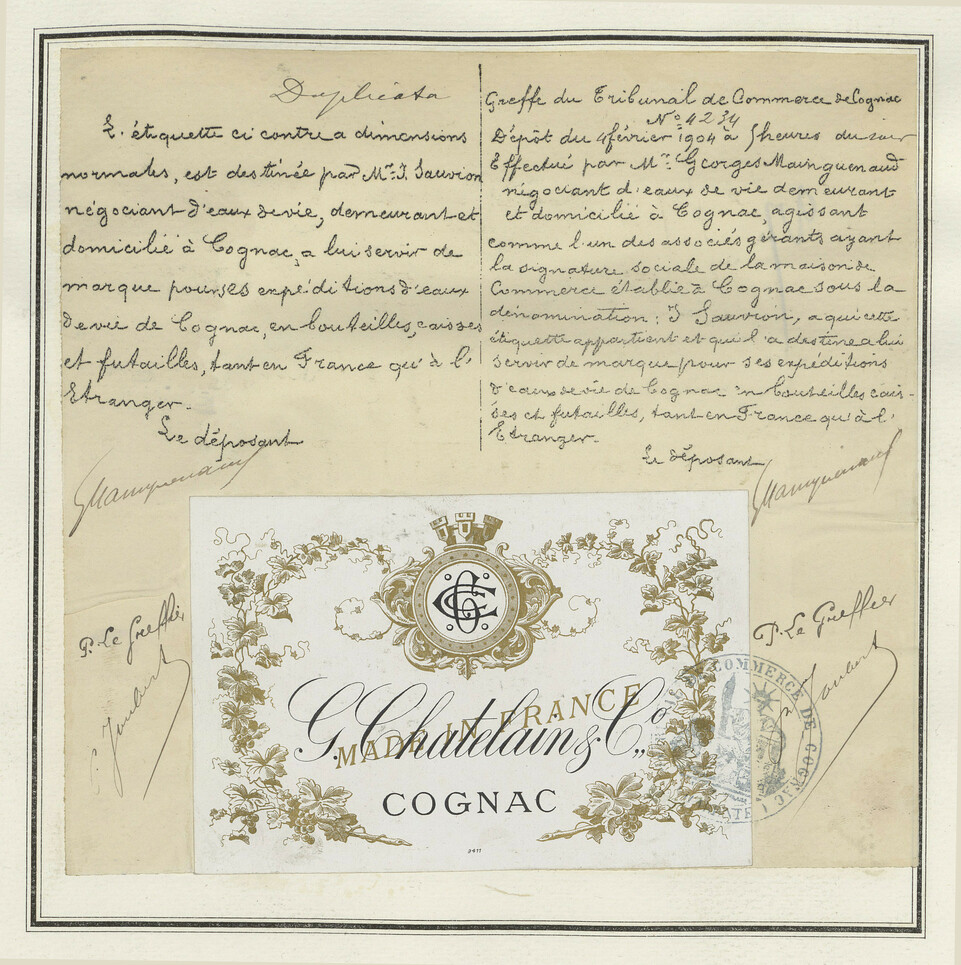 Duplicata
L'étiquette ci contre a dimensions
normales, est destinée par Mr. J. Sauvion
négociant d'eaux de vie, demeurant et
domicilié à Cognac, a lui servir de
marque pour ses expéditions d'eaux
de vie de Cognac, en bouteilles, caisses
et futailles, tant en France qu'à l'
Etranger.
Le déposant
GMainguenaud
P. Le Greffier
C. Joubert
Greffe du Tribunal de Commerce de Cognac
No. 4234
Dépôt du 4 février 1904 à 5 heures du soir
Effectué par Mr. Georges Mainguenaud
négociant d'eaux de vie demeurant
et domicilié à Cognac, agissant
comme l'un des associés gérants ayant
la signature sociale de la maison de
Commerce établie à Cognac sous la
dénomination: J Sauvion, a qui cette
étiquette appartient et qui l'a destinée a lui
servir de marque pour ses expéditions
d'eaux de vie de Cognac en bouteilles cais-
ses et futailles, tant en France qu'à l'
Etranger.
Le déposant
GMainguenaud
P. Le Greffier
Joubert
G. Chatelain & Co.
MADE IN FRANCE
COGNAC
3411
COMMERCE DE COGNAC